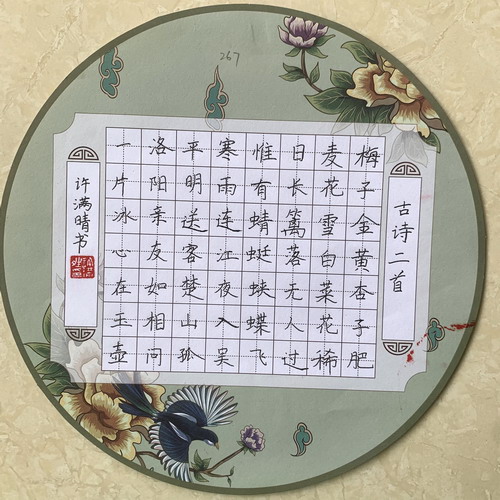 267
古诗二首
梅子金黄杏子肥
麦花雪白菜花稀
日长篱落无人过
惟有蜻蜓蛱蝶飞
寒雨连江夜入吴
平明送客楚山孤
洛阳亲友如相问
一片冰心在玉壶
许满晴书